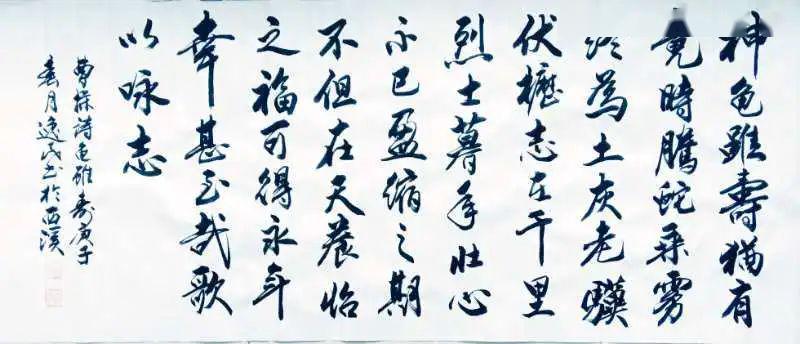 神龟雖壽猶有
竟時騰蛇乘雾
终為土灰老驥
伏櫪志在千里
烈士暮年壮心
不已盈缩之期
不但在天養怡
之福可得永年
幸甚至哉歌
以咏志
曹操詩龟雖寿庚子
春月逸民书於西溪